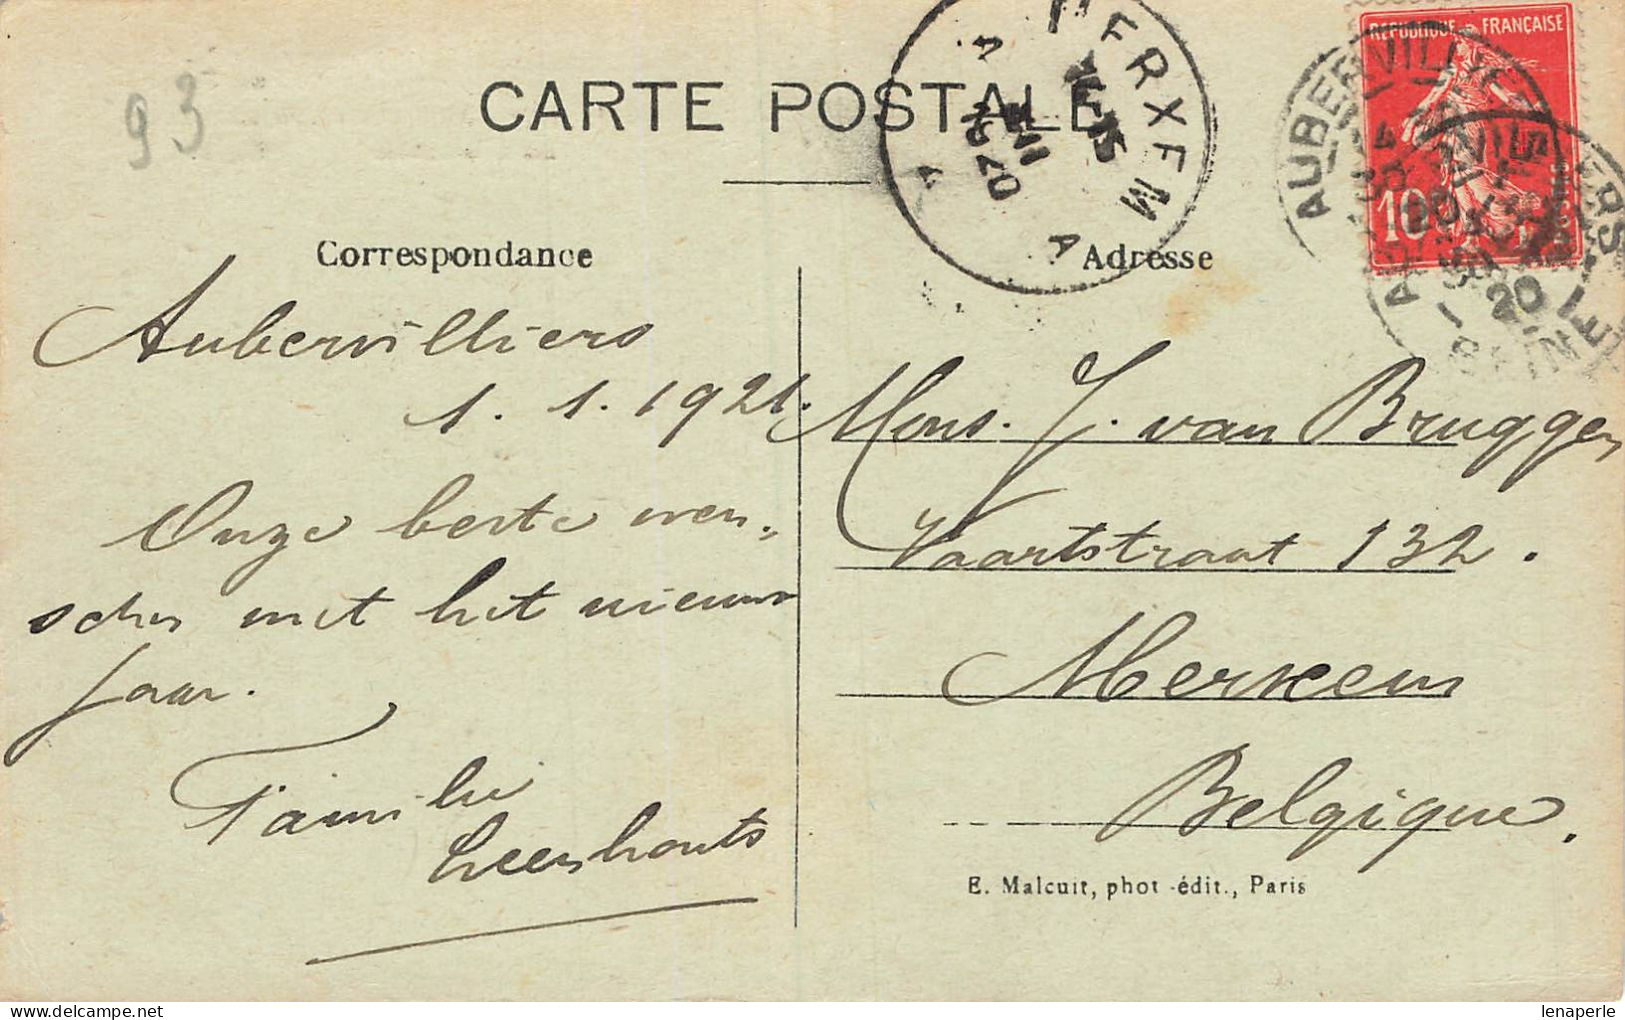 93
CARTE POSTALE
REPUBLIQUE FRANÇAISE
10
AUBERVILLIERS
20
SEINE
MERXEM
Correspondance
Adresse
Aubervilliers
1.1.1921.
Onze beste wen-
schen met het nieuw
jaar.
Familie
Mons. J. van Bruggen
Vaartstraat 132.
Merxem
Belgique.
E. Malcuit, phot-édit., Paris
lenaperle